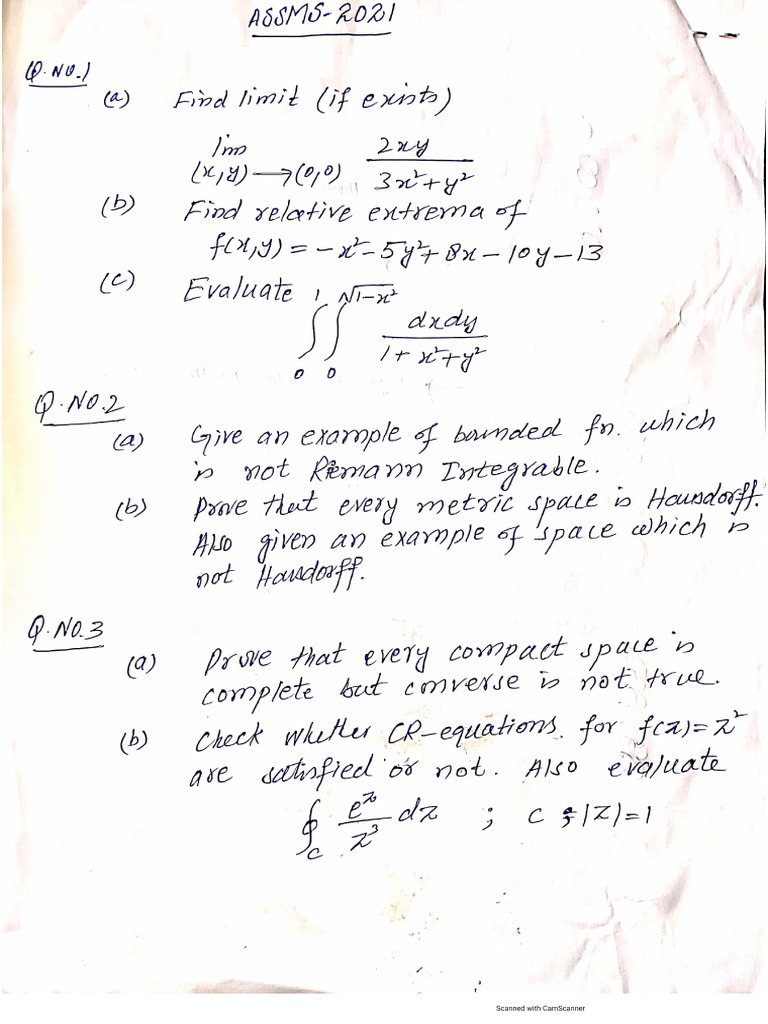 ASSMS-2021
Q.NO.1
(a) Find limit (if exists)
lim (x,y)→(0,0) 2xy / 3x²+y²
(b) Find relative extrema of
f(x,y) = -x²-5y²+8x-10y-13
(c) Evaluate
∫₀¹ ∫₀^√1-x² dxdy / 1+x²+y²
Q.NO.2
(a) Give an example of bounded fn. which
is not Riemann Integrable.
(b) Prove that every metric space is Hausdorff.
Also given an example of space which is
not Hausdorff.
Q.NO.3
(a) Prove that every compact space is
complete but converse is not true.
(b) Check whether CR-equations for f(z)=z²
are satisfied or not. Also evaluate
∮_C e^z / z³ dz ; C : |z|=1
Scanned with CamScanner